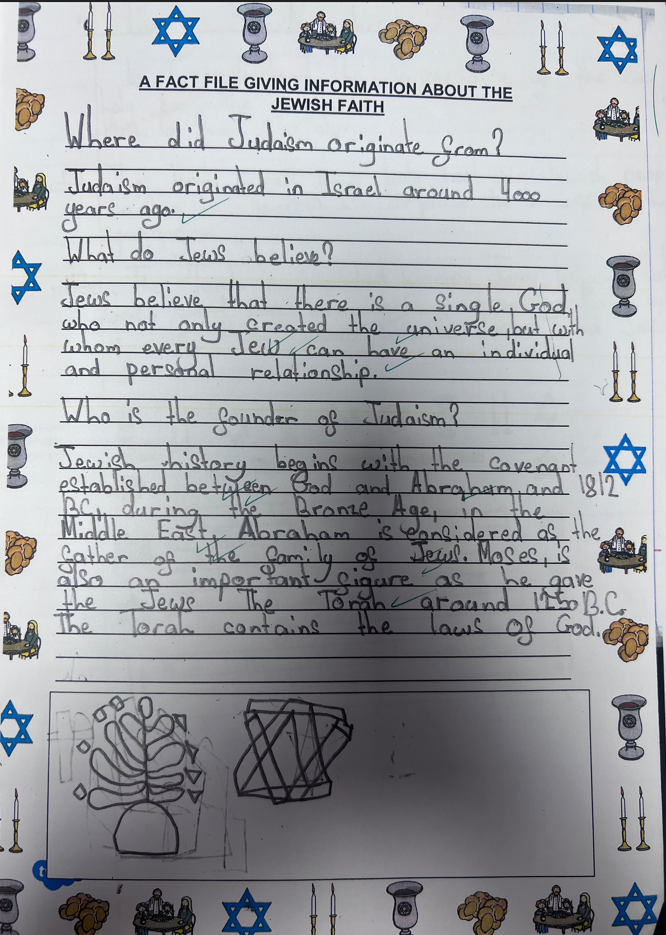 A FACT FILE GIVING INFORMATION ABOUT THE
JEWISH FAITH
Where did Judaism originate from?
Judaism originated in Israel around 4000
years ago.
What do Jews believe?
Jews believe that there is a single God,
who not only created the universe, but with
whom every Jew can have an individual
and personal relationship.
Who is the founder of Judaism?
Jewish history begins with the covenant
established between God and Abraham and 1812
BC, during the Bronze Age, in the
Middle East, Abraham is considered as the
father of the family of Jews. Moses, is
also an important figure as he gave
the Jews The Torah around 1250 B.C.
The Torah contains the laws of God.